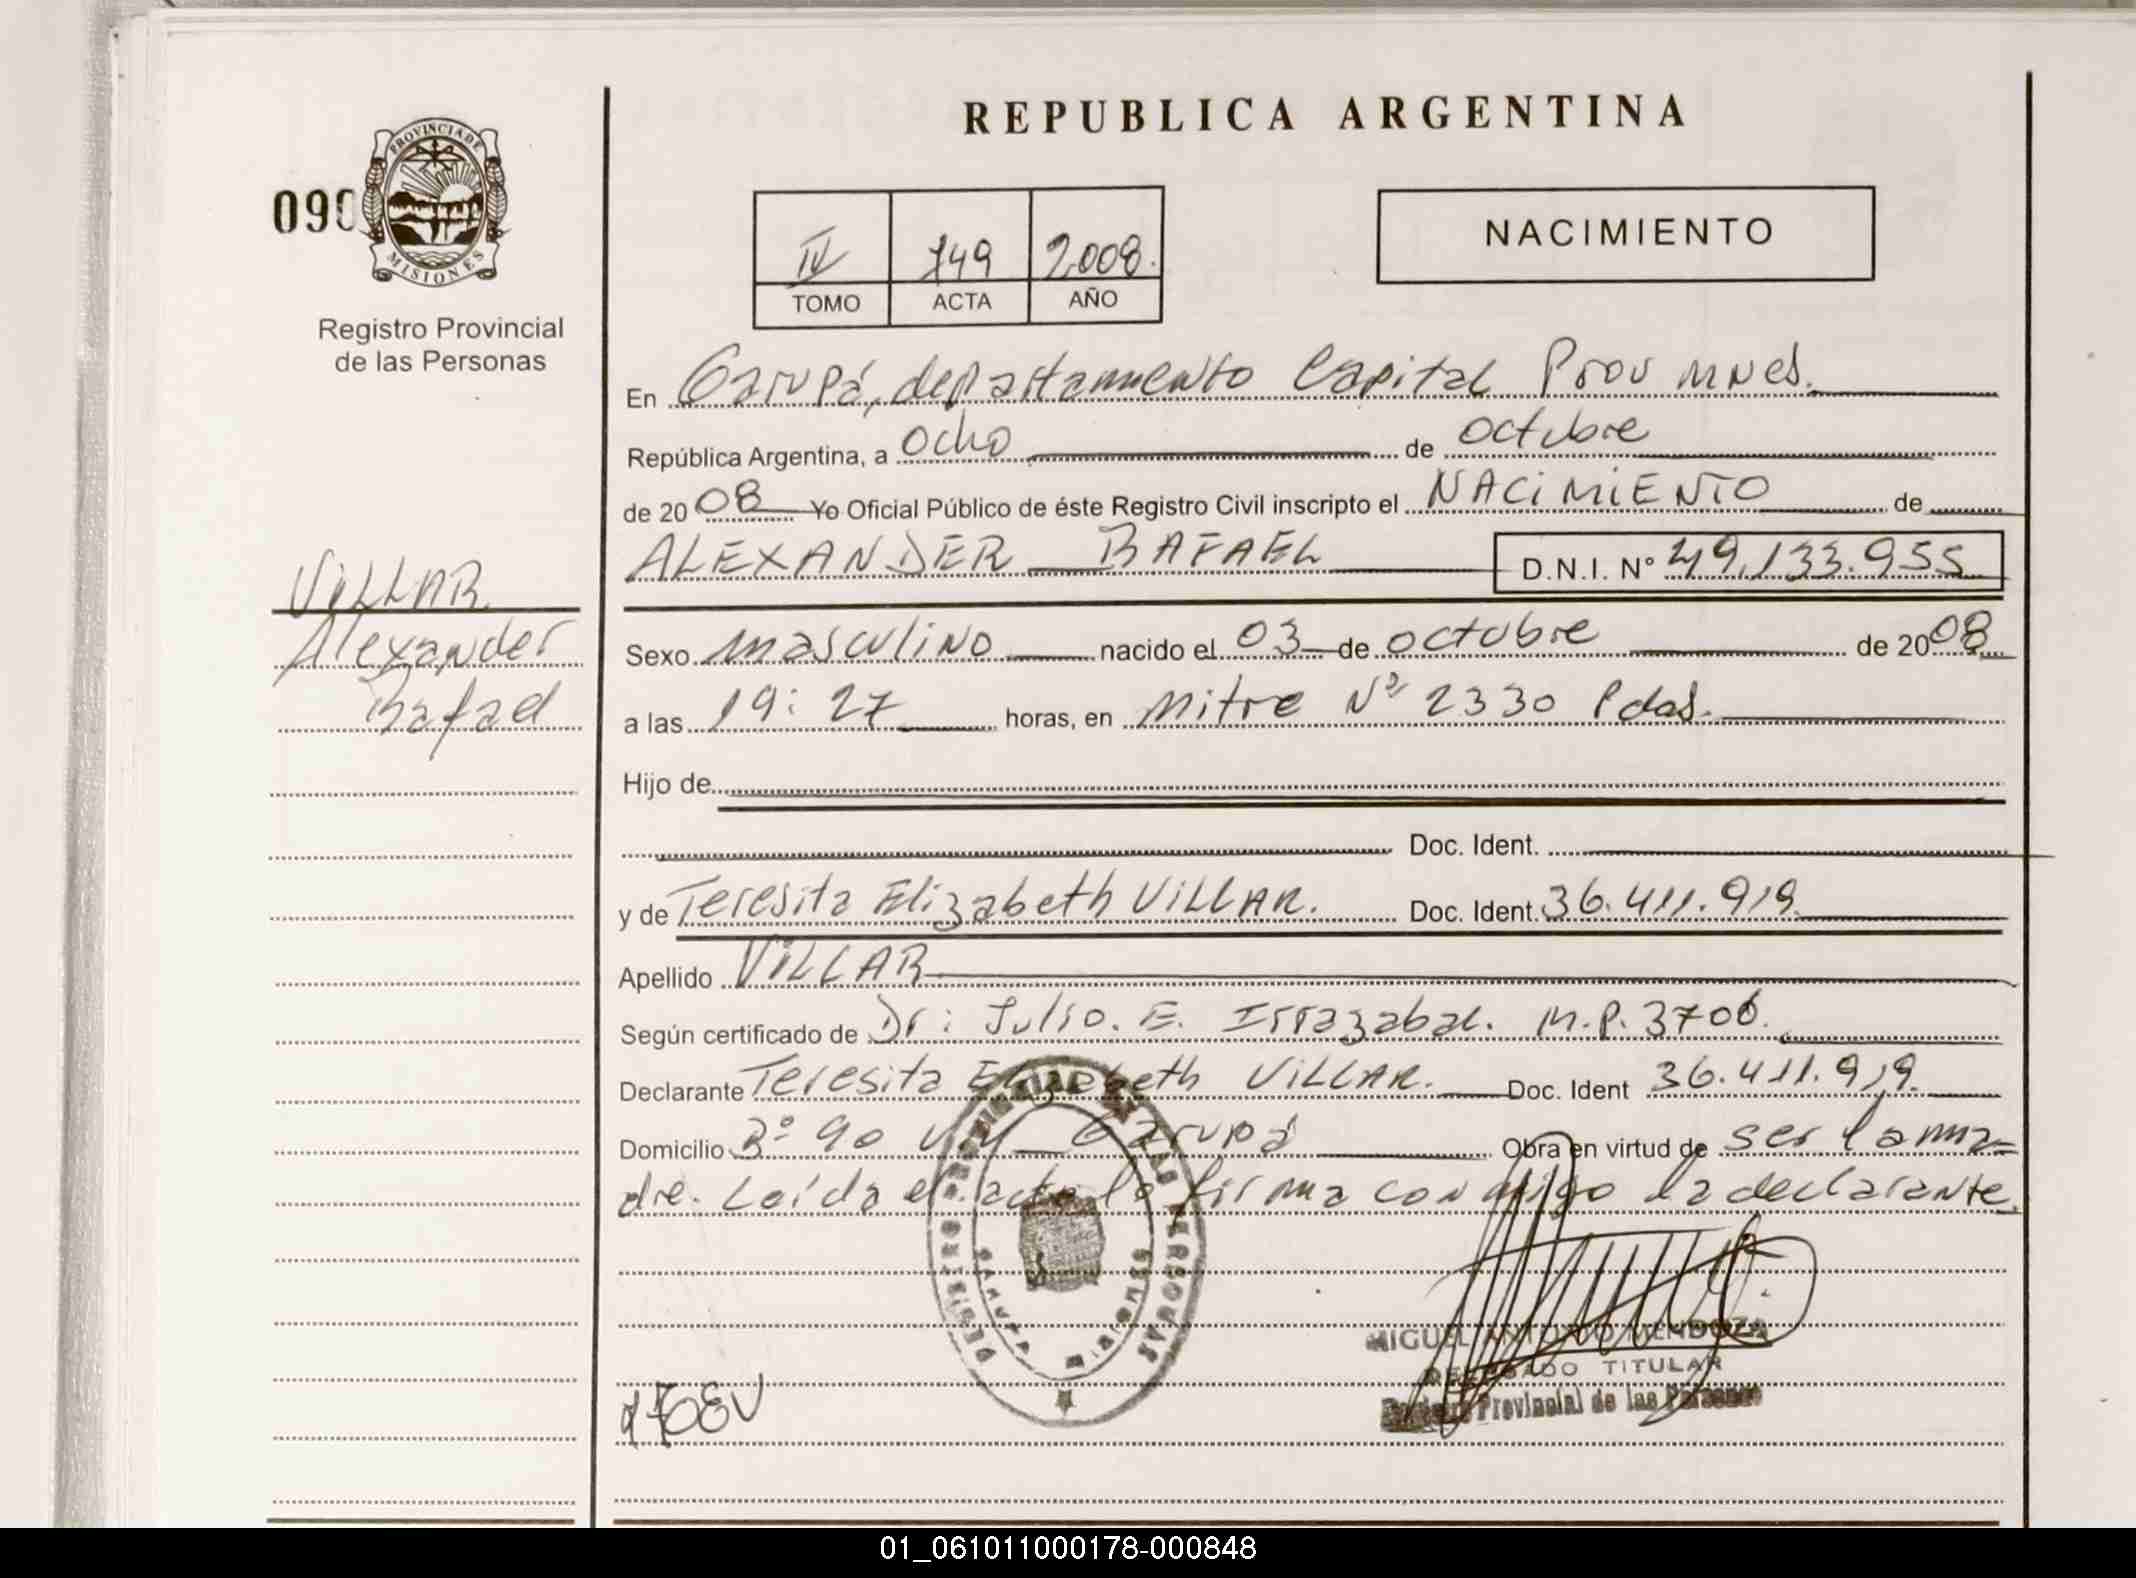 REPUBLICA ARGENTINA
090
PROVINCIA DE
MISIONES
Registro Provincial
de las Personas
IV 749 2.008.
TOMO ACTA AÑO
NACIMIENTO
En Garupá, departamento Capital Prov Mnes.
República Argentina, a Ocho de octubre
de 2008 Yo Oficial Público de éste Registro Civil inscripto el NACIMIENTO de
ALEXANDER RAFAEL D.N.I. Nº 49.133.955
VILLAR
Alexander
Rafael
Sexo masculino nacido el 03 de octubre de 2008
a las 19:27 horas, en Mitre Nº 2330 Pdas.
Hijo de
Doc. Ident.
y de Teresita Elizabeth VILLAR. Doc. Ident. 36.411.919
Apellido VILLAR
Según certificado de Dr: Julio. E. Irrazabal. M.P. 3706.
Declarante Teresita Elizabeth VILLAR. Doc. Ident 36.411.919.
Domicilio Bº 90 Garupá Obra en virtud de ser la ma=
dre. Leída el acta la firma conmigo la declarante.
REGISTRO PROVINCIAL DE LAS PERSONAS
GARUPA
MISIONES
MIGUEL ANTONIO MENDOZA
DELEGADO TITULAR
Registro Provincial de las Personas
01_061011000178-000848